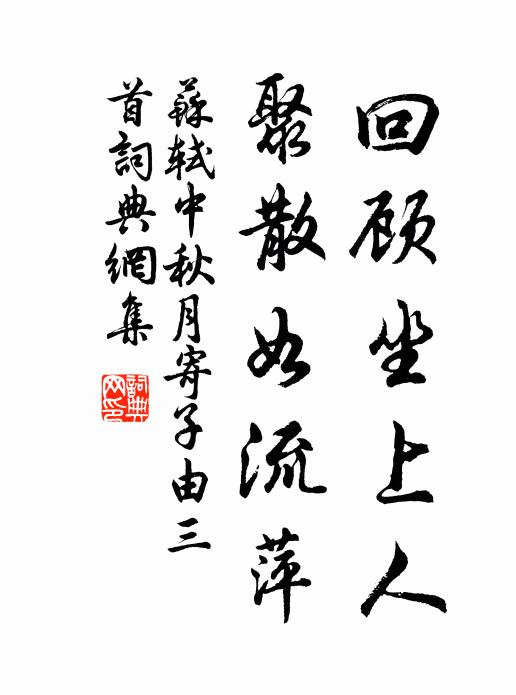 回顾坐上人
聚散如流萍
蘇軾中秋月寄子由三
首詞典網集
詞典
网印